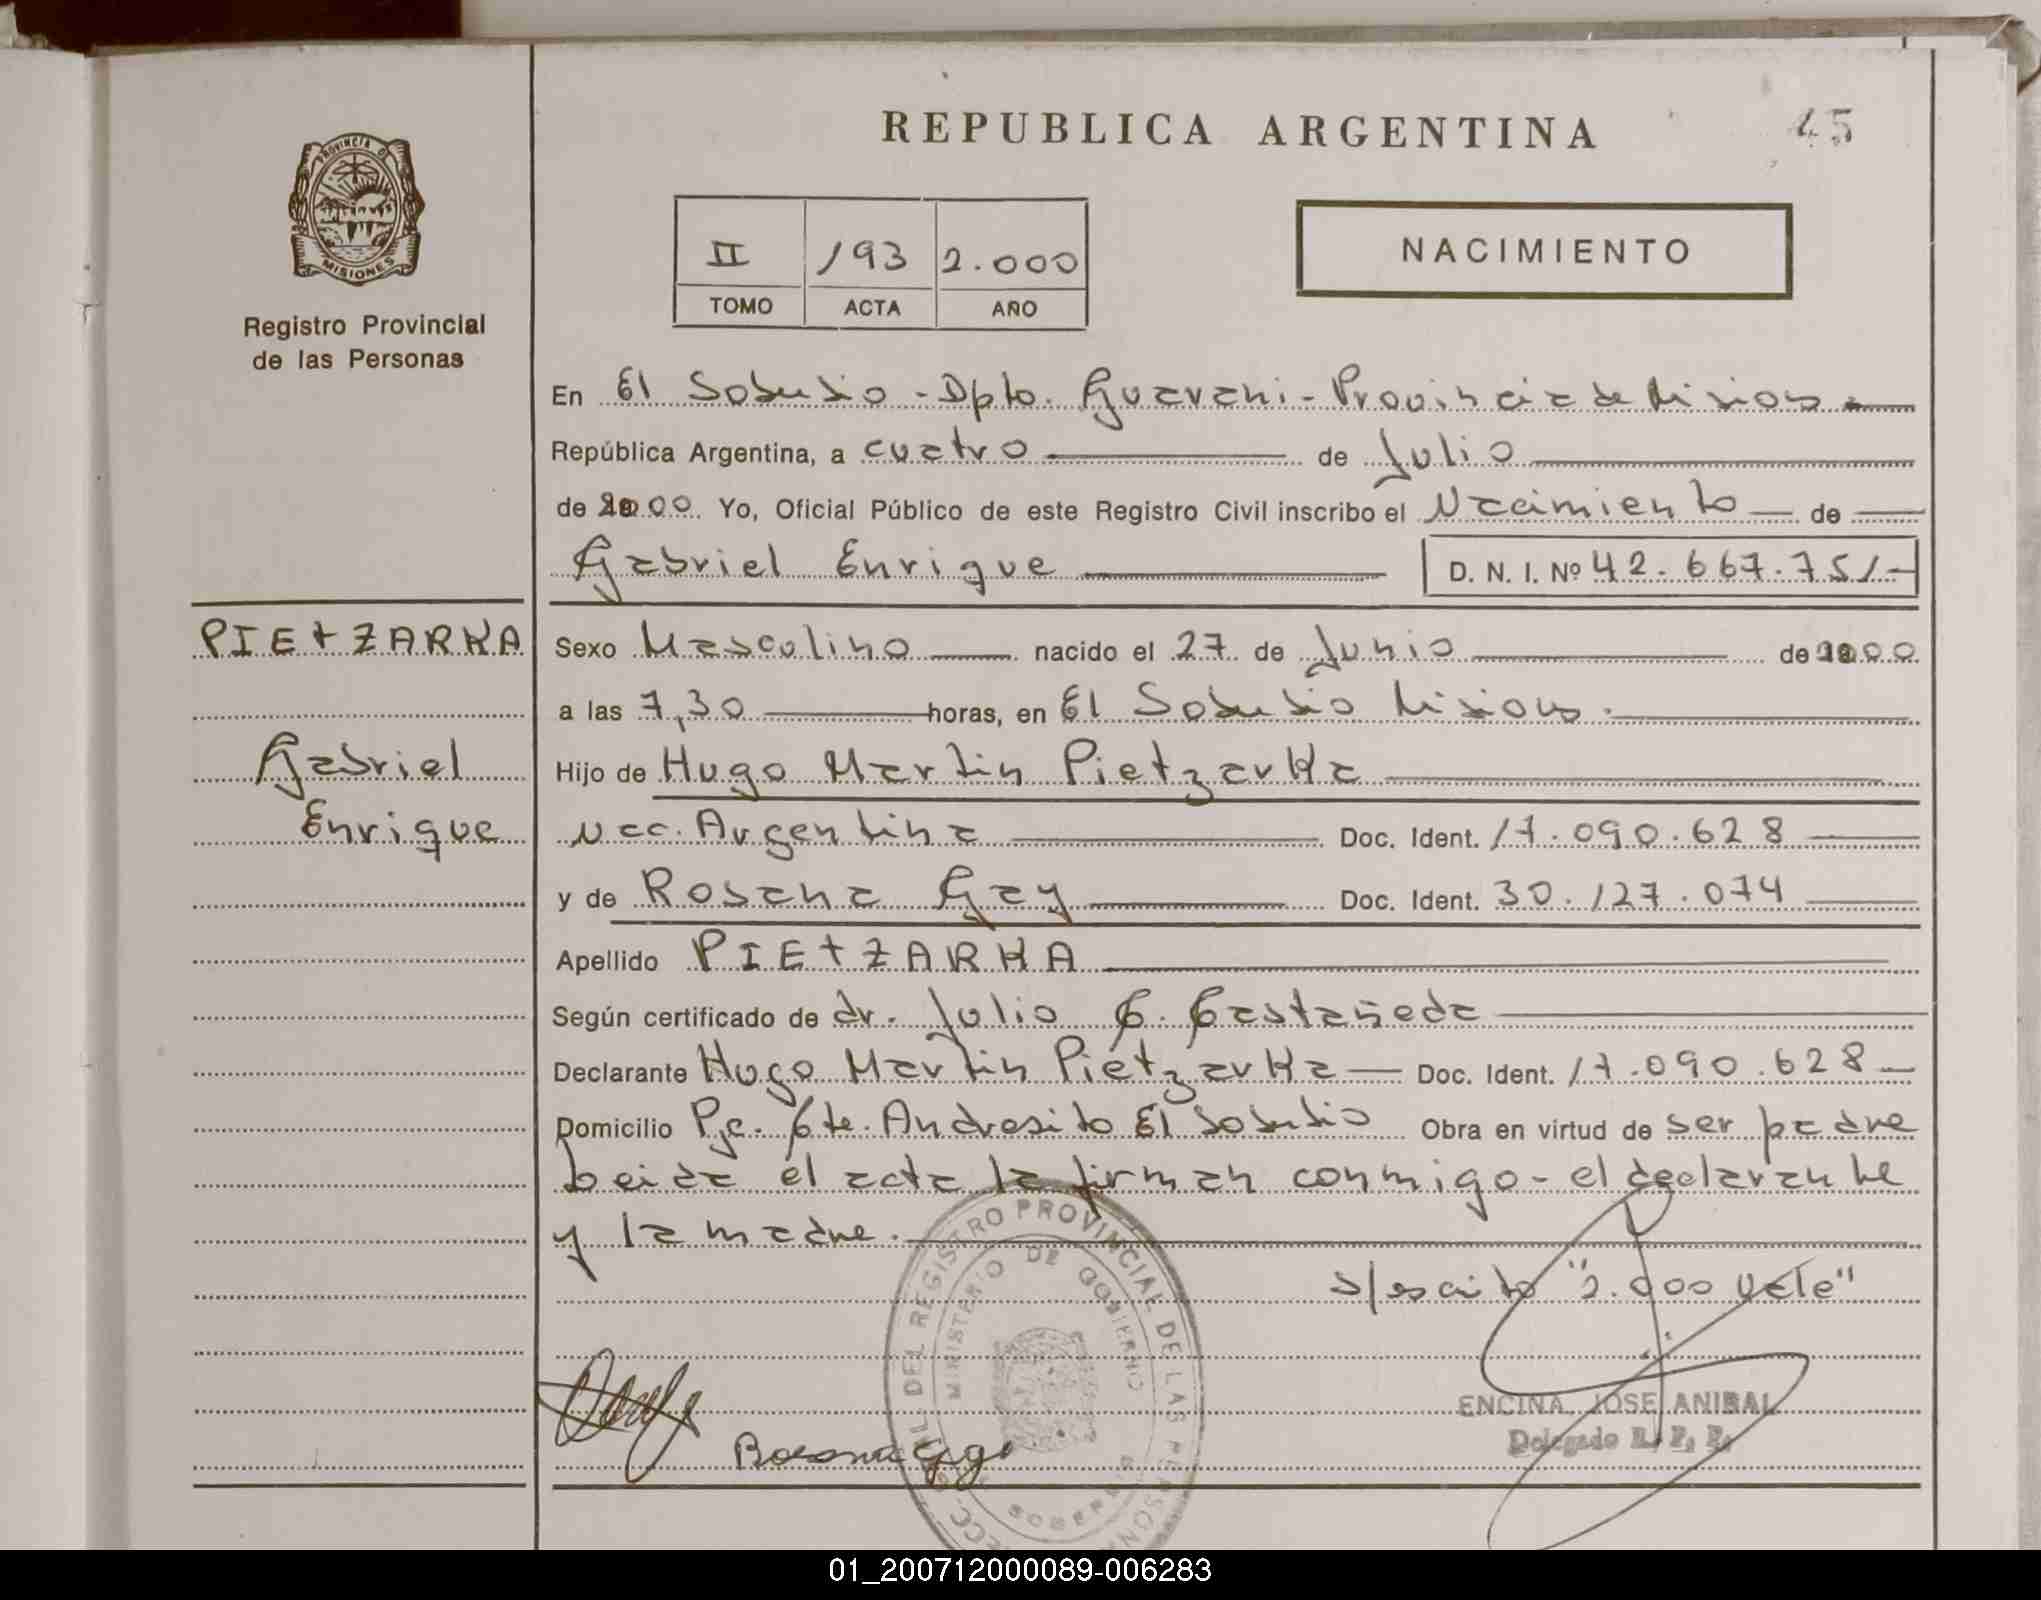 REPUBLICA ARGENTINA
45
PROVINCIA DE
MISIONES
Registro Provincial
de las Personas
II 193 2.000
TOMO ACTA AÑO
NACIMIENTO
En El Soberbio - Dpto. Guarani - Provincia de Misiones
República Argentina, a cuatro de Julio
de 2000 Yo, Oficial Público de este Registro Civil inscribo el Nacimiento de
Gabriel Enrique D. N. I. Nº 42.667.751.-
PIETZARKA
Gabriel
Enrique
Sexo Masculino nacido el 27 de Junio de 2000
a las 7,30 horas, en El Soberbio Misiones.
Hijo de Hugo Martin Pietzarka
Nac. Argentina Doc. Ident. 17.090.628
y de Rosana Gay Doc. Ident. 30.127.074
Apellido PIETZARKA
Según certificado de dr. Julio C. Castañeda
Declarante Hugo Martin Pietzarka Doc. Ident. 17.090.628
Domicilio Pje. Cte. Andresito El Soberbio Obra en virtud de ser padre
Leida el acta la firman conmigo - el declarante
y la madre.
s/escrito "2.000 Vale"
DEL REGISTRO PROVINCIAL DE LAS PERSON
MINISTERIO DE GOBIERNO
SOBERBIO
ENCINA JOSE ANIBAL
Delegado R. P. P.
Rosana Gay
01_200712000089-006283